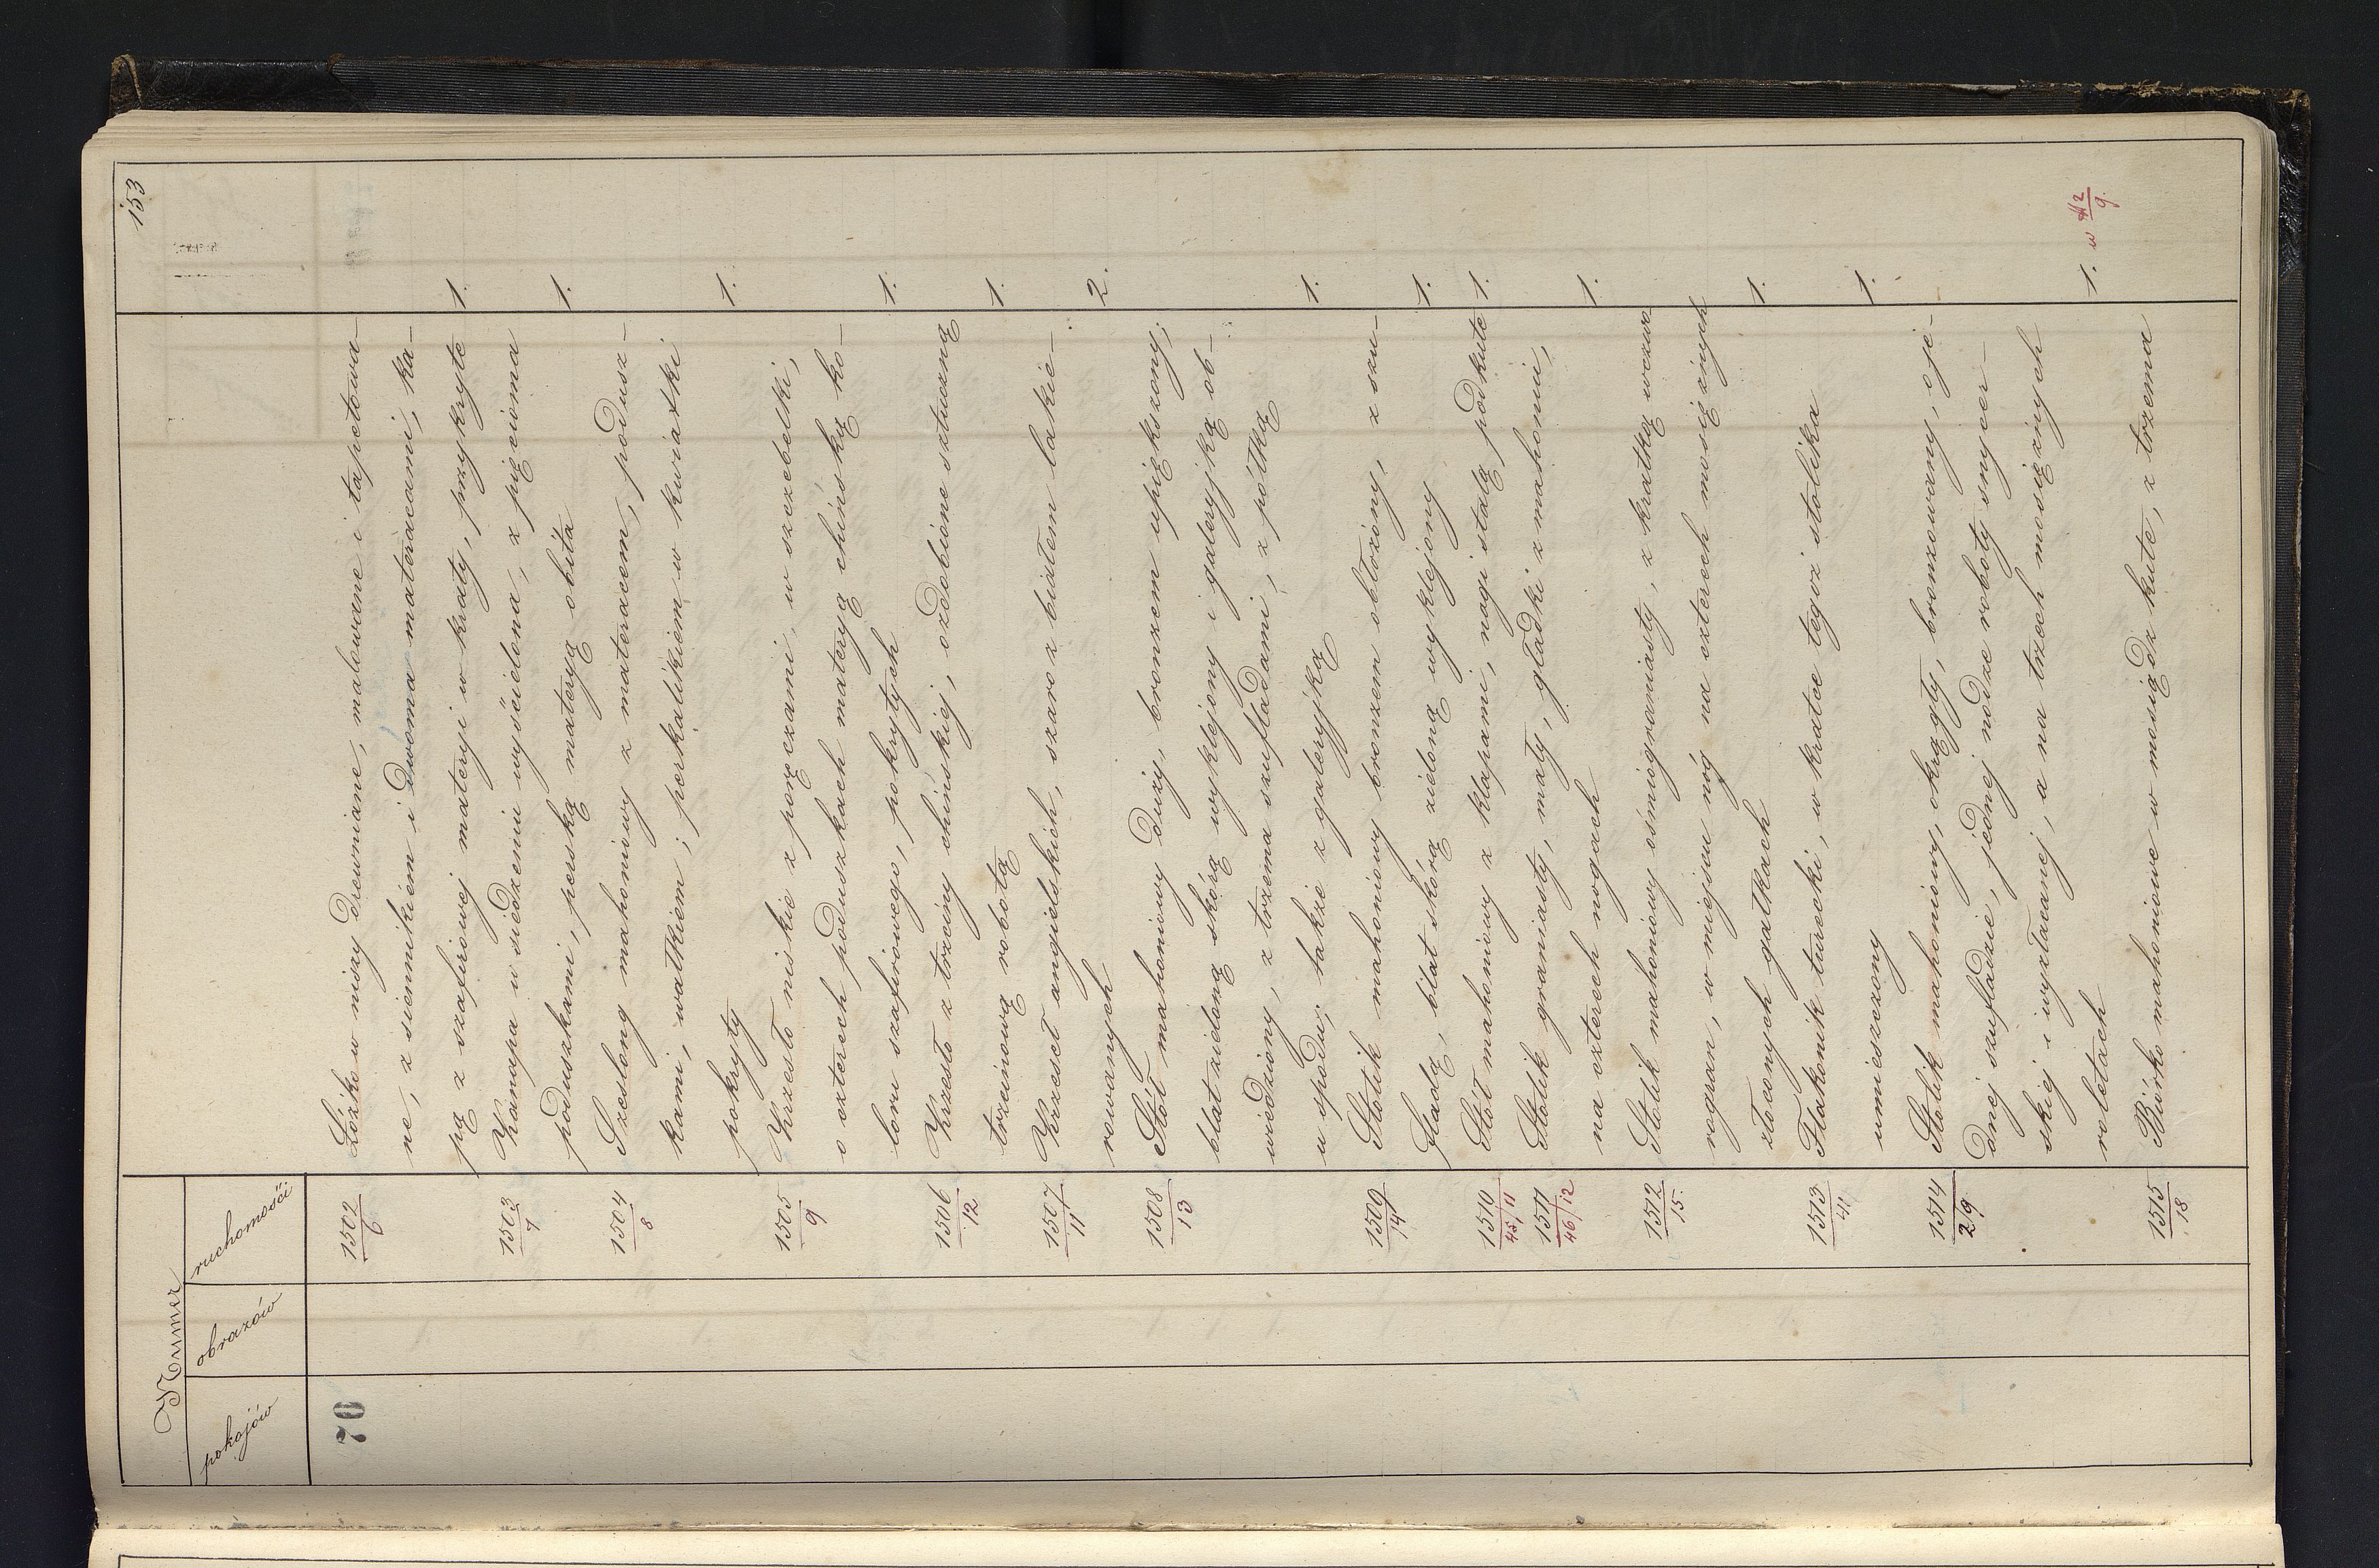 153
Numer
pokojów obrazów ruchomości
70 1502/6 Łóżko w niszy drewniane, malowane i tapetowa-
ne, z siennikiem i dwoma materacami, ka-
pą z szafirowej materyi w kraty, przykryte 1.
1503/7 Kanapa w siedzeniu wyścielona, z pięcioma
poduszkami, perską materyą obita 1.
1504/8 Szeslong mahoniowy z materacem, podusz-
kami, wałkiem; perkalikiem w kwiatki
pokryty 1.
1505/9 Krzesło niskie z poręczami, w szczebelki,
o czterech poduszkach materyą chińską ko-
loru szafirowego, pokrytych 1.
1506/12 Krzesło z trzciny chińskiej, ozdobione sztuczną
trzcinową robotą 1.
1507/11 Krzeseł angielskich, szaro z białem lakie-
rowanych 2.
1508/13 Stół mahoniowy duży, bronzem upiększony,
blat zieloną skórą wyklejony i galeryjką ob-
wiedziony, z trzema szufladami, z półką
u spodu; także z galeryjką 1.
1509/14 Stolik mahoniowy bronzem obłożony, z szu-
fladą, blat skórą zieloną wyklejony 1.
1510 45/11 Stół mahoniowy z klapami, nogi stalą podkute 1.
1511 46/12 Stolik graniasty, mały, gładki z mahoniu,
na czterech nogach 1.
1512/15. Stolik mahoniowy ośmiograniasty, z kratką wczwo
rogran, w miejscu nóg na czterech mosiężnych
złoconych gałkach 1.
1513/41 Flakonik turecki, w kratce tegoż stolika
umieszczony 1.
1514/29 Stolik mahoniowy, okrągły, bronzowany, o je-
dnej szufladzie, jednej nodze roboty snycer-
skiej i wyzłacanej, a na trzech mosiężnych
roletach 1. w
1515/18 Biórko mahoniowe w mosiądz kute, z trzema